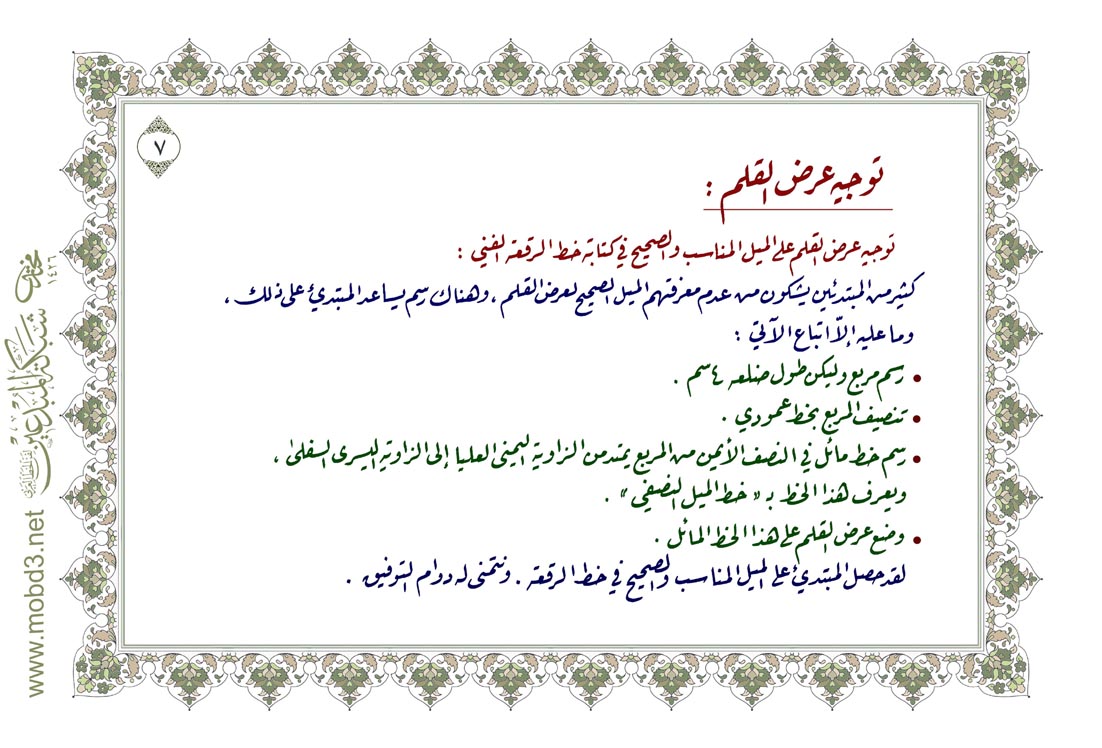 ٧
توجيه عرض القلم :
توجيه عرض القلم على الميل المناسب والصحيح في كتابة خط الرقعة الفني :
كثير من المبتدئين يشكون من عدم معرفتهم الميل الصحيح لعرض القلم ، وهناك رسم يساعد المبتدئ على ذلك ،
وما عليه إلاّ اتباع الآتي :
• رسم مربع وليكن طول ضلعه ٤ سم .
• تنصيف المربع بخط عمودي .
• رسم خط مائل في النصف الأيمن من المربع يمتد من الزاوية اليمنى العليا إلى الزاوية اليسرى السفلى ،
ويعرف هذا الخط بـ « خط الميل النصفي » .
• وضع عرض القلم على هذا الخط المائل .
لقد حصل المبتدئ على الميل المناسب والصحيح في خط الرقعة . ونتمنى له دوام التوفيق .
شبكة المبدعين
١٤٢٦
www.mobd3.net